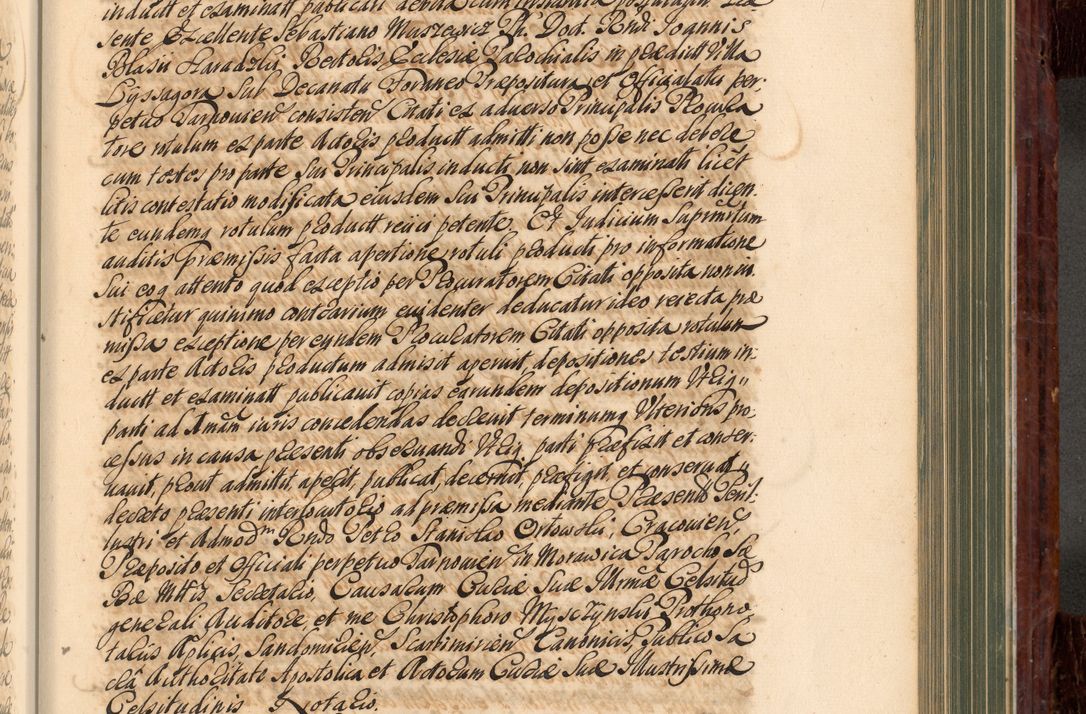 inductt et examinatt publicari debita cum instantia postulavit. Prae
sente Excellente Sebastiano Muszewicz Ph. Doct. Rndi Joannis
Blasii Haradzki Rectoris Ecclesiae Parochialis in praedict Villa
Lyssagora Sub Decanatu Foraneo Praepositura et Officialatu per
petuo Tarnouien consisten Citati ex adverso Principalis Procura
tore rotulum ex parte Actoris productt admitti non posse nec debere
cum testes pro parte Sui Principalis inducti non sint examinati licet
litis contestatio modificata eiusdem Sui Principalis intercesserit dicen
te eundemq rotulum productt reiici petente. Et Judicium Suprmrtum
auditis praemissis facta apertione rotuli producti pro informatione
Sui eoq attento quod exceptio per Procuratorem Citati opposita non iu
stificetur quinimo contrarium euidenter deducatur ideo reiecta prae
missa exceptione per eundem Procuratorem Citati opposita rotulum
ex parte Actoris productum admisit aperuit depositiones testium in
ductt et examinatt publicauit copias earundem depositionum Utriq
parti ad Amm iuris concedendas decreuit terminumq Ulterioris pro
cessus in causa praesenti obseruandi Utriq parti praefixit et conser
uauit, prout admittit, aperit, publicat, decernit, praefigit, et conseruat
decreto praesenti interlocutorio ad praemissa mediante Praesentt Peril
lustri et Admodm Rndo Petro Stanislao Orlowski, Cracouien,
Praeposito, et Officiali perpetuo Tarnouien in Morawica Parocho, Sa
Rae Mttis Secretario, Causarum Curiae Suae Illrmae Celsitud
generali Auditore et me Christophoro Myszzynski Prothono
tarius Aplicis, Sandomirien, Scarbimirien Canonicis, Publico Sa
cra Authoritate Apostolica et Actorum Curiae Suae Illustrissimae
Celsitudinis Notario.